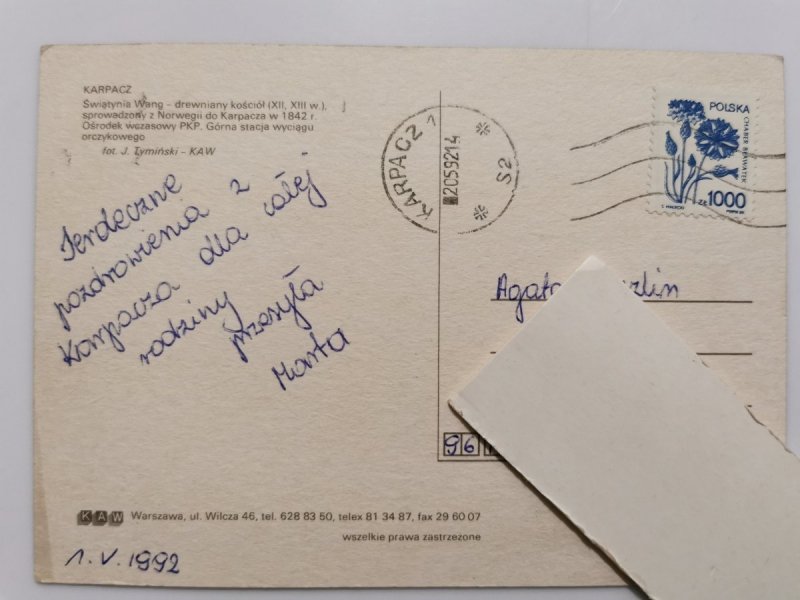 KARPACZ
Świątynia Wang – drewniany kościół (XII, XIII w.),
sprowadzony z Norwegii do Karpacza w 1842 r.
Ośrodek wczasowy PKP. Górna stacja wyciągu
orczykowego
fot. J. Tymiński - KAW
Serdeczne
pozdrowienia z
Karpacza dla całej
rodziny
przesyła
Marta
KAW Warszawa, ul. Wilcza 46, tel. 628 83 50, telex 81 34 87, fax 29 60 07
wszelkie prawa zastrzeżone
1.V.1992
KARPACZ 1
2059214
S2
POLSKA
CHABER BŁAWATEK
ZŁ 1000
Agata
96